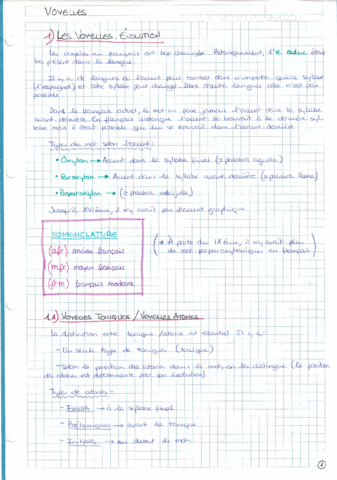 VOYELLES
1) LES VOYELLES: ÉVOLUTION
Les voyelles en français ont bcp changées. Historiquement, l'e caduc était
très présent dans la langue.
Il y a de langues où l'accent peut tomber dans n'importe quelle syllabe
(l'espagnol) et cette syllabe peut changer. Dans d'autres langues cela n'est pas
possible.
Dans le français actuel, le mot ne pose jamais l'accent dans la syllabe
avant-dernière. En français l'accent se trouvait à la dernière syl-
labe mais il était possible que se trouvait dans l'avant-dernière.
Types de mot selon l'accent:
• Oxyton → Accent dans la syllabe final (= palabra aguda)
• Paroxyton → Accent dans la syllabe avant-dernière (= palabra llana)
• Proparoxyton → (= palabra esdrújula)
Jusqu'à XVIème, il n'y avait pas l'accent graphique
NOMENCLATURE
(afr) ancien français
(mfr) moyen français
(frm) français moderne
(* À partir du IXème, il n'y avait plus
de mot proparoxytoniques en français)
1.1) VOYELLES TONIQUES / VOYELLES ATONES
La distinction entre tonique/atone est essentiel. Il y a:
- Un seule type de toniques (tonique)
- Selon la position des atones dans le mot, on les distingue (la position
des atones est déterminante pour son évolution)
Types de atones:
- Finals → à la syllabe final
- Prétoniques → avant la tonique
- Initials → au début de mot
1